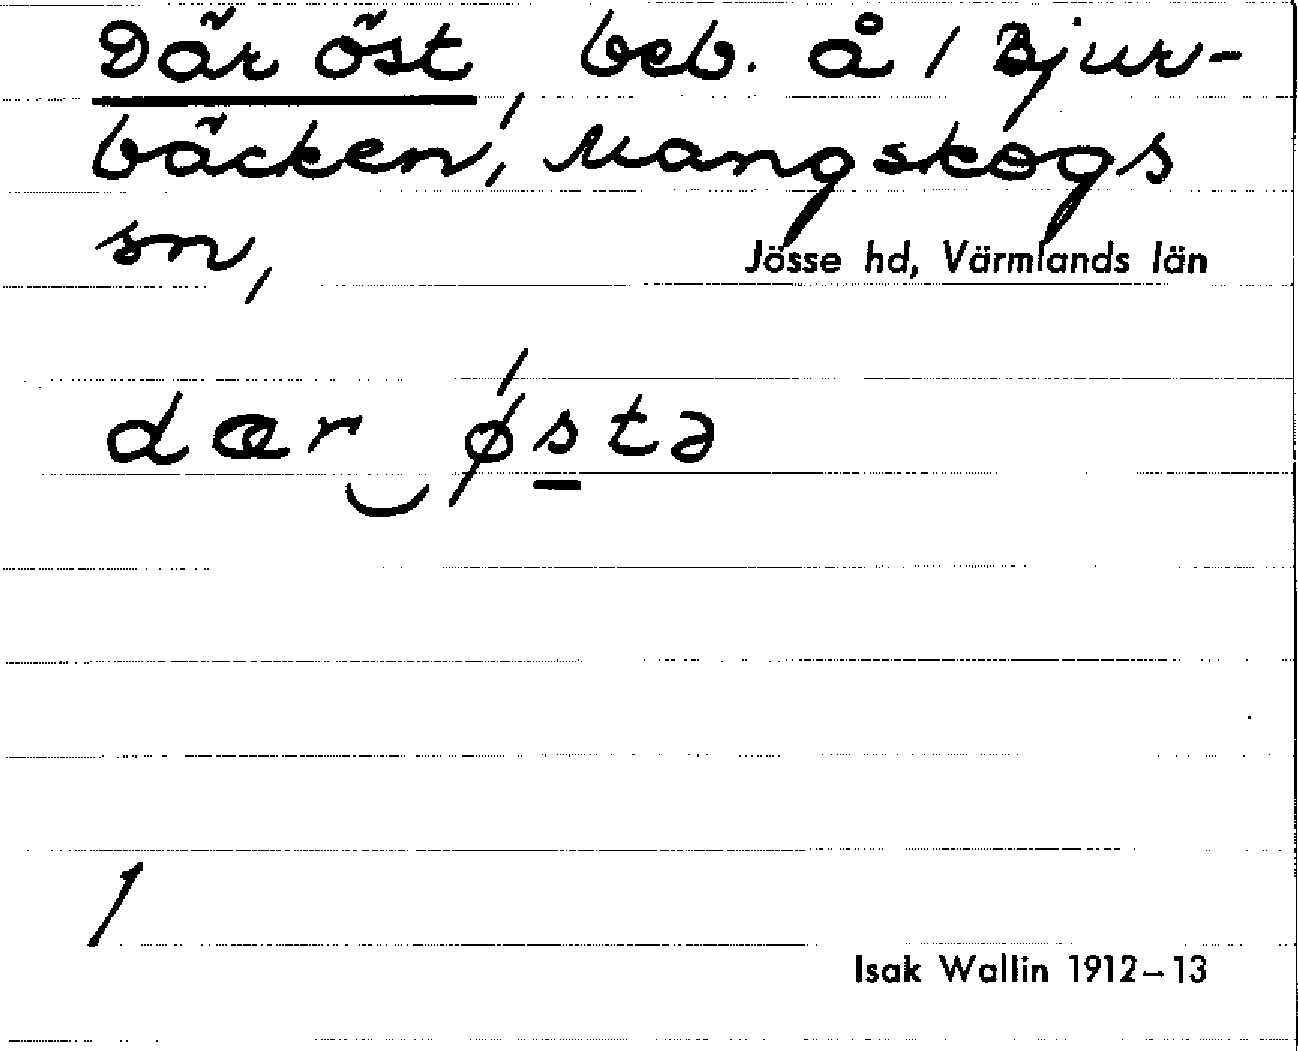 Där öst, beb. å 1 Bjur-
bäcken, Mangskogs
sn,
Jösse hd, Värmlands län
dær‿ǿstə
1
Isak Wallin 1912–13